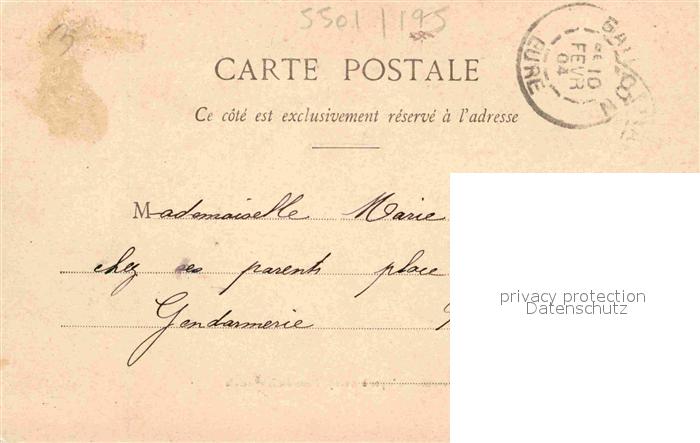 5501 / 195
CARTE POSTALE
Ce côté est exclusivement réservé à l'adresse
GAILLON
10
FEVR
04
EURE
Mademoiselle Marie
chez ses parents place
Gendarmerie
privacy protection
Datenschutz